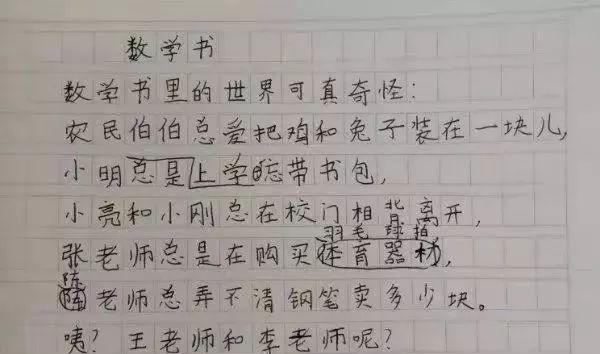 数学书
数学书里的世界可真奇怪:
农民伯伯总爱把鸡和兔子装在一块儿,
小明总是上学忘带书包,
小亮和小刚总在校门相背离开,
羽毛球拍
张老师总是在购买体育器材,
陈
老师总弄不清钢笔卖多少块。
咦?王老师和李老师呢?